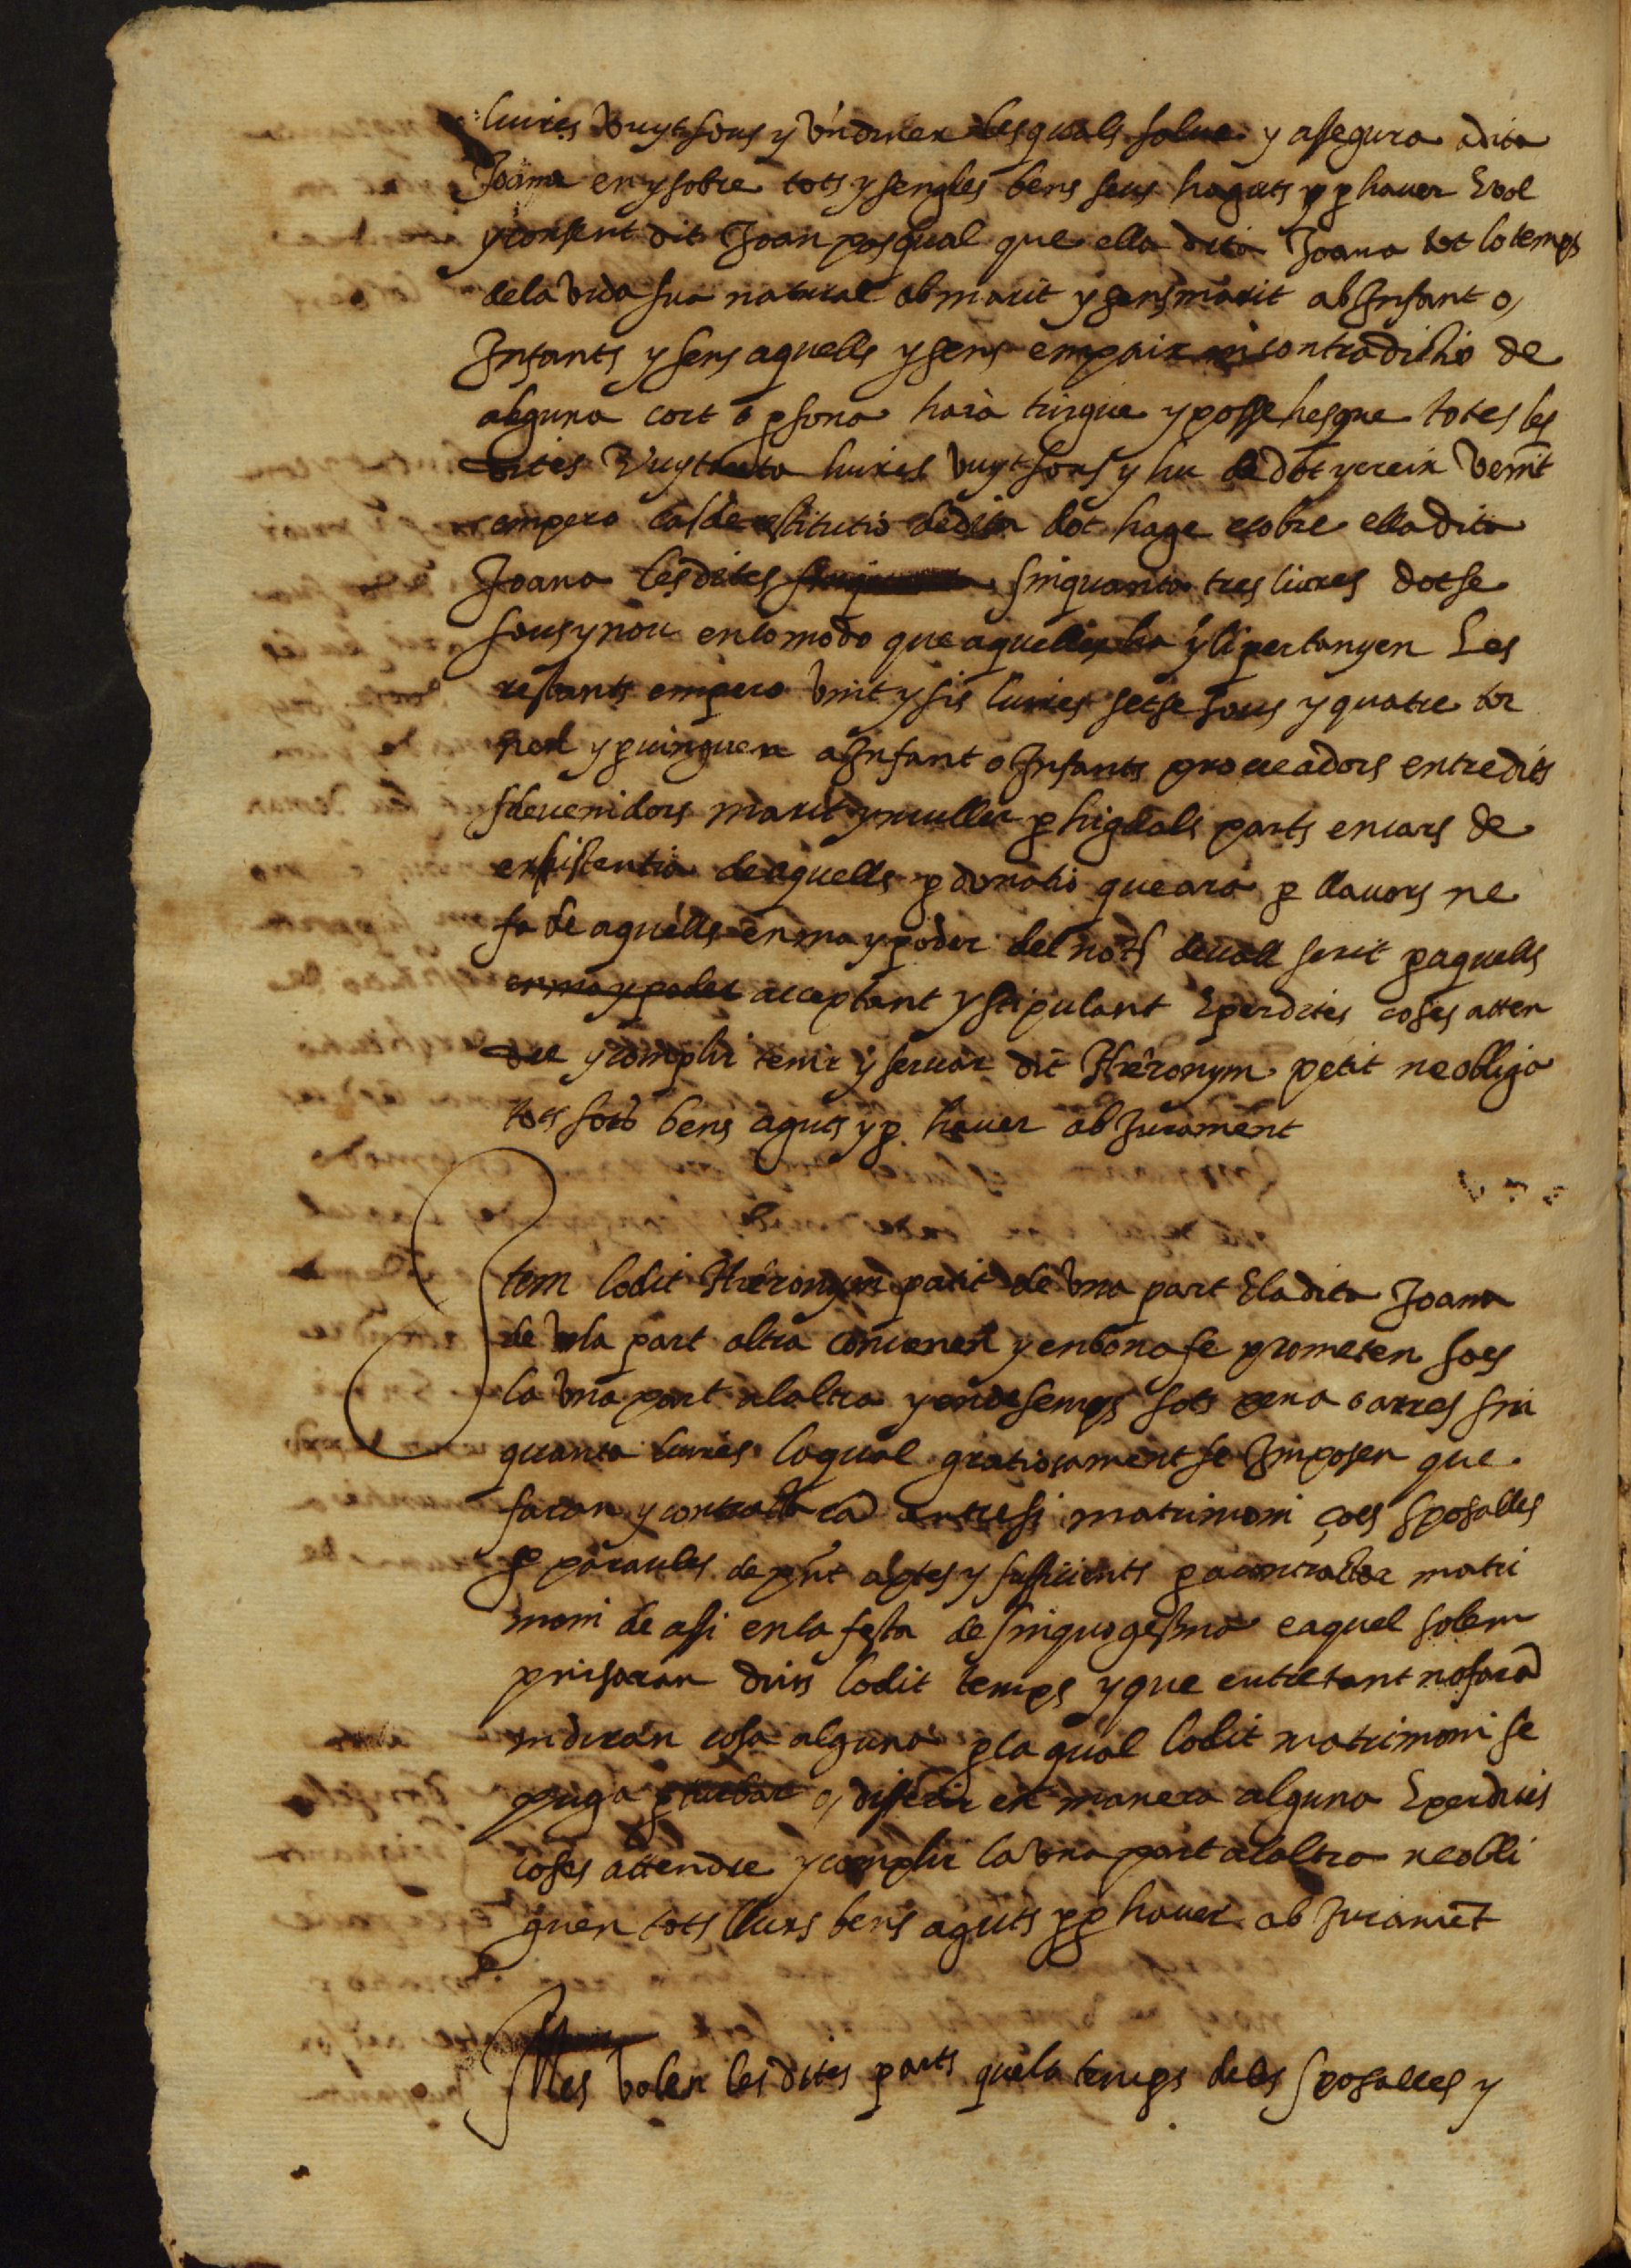 liures vuyt sous y un diner les quals salua y assegura a dita
Joana en y sobre tots y sengles bens seus haguts y p hauer E vol
y consent dit Joan pasqual que ella dita Joana tot lo temps
de la vida sua natural ab marit y sens marit ab Infant o,
Infants y sens aquells y sens empaix ni contradictio de
alguna cort o psona haia tingue y possehesque totes les
dites Vuytanta liures vuyt sous y hu de dot y creix venit
empero cas de restitutio de dita dot hage e cobre ella dita
Joana les dites sinquanta tres liures dotse
sous y nou en lo modo que aquelles ha y li pertanyen Les
restants empero vint y sis liures setse sous y quatre tor
nen y peruinguen a Infant o Infants procreadors entre dits
sdeuenidors marit y muller p higuals parts en cars de
exsistentia de aquells p donatio que ara p llauors ne
fa de aquells en ma y poder del nots deuall scrit p aquells
en ma y poder acceptant y stipulant E per dites coses atten
dre y complir tenir y seruar dit Hieronym petit ne obliga
tots sos bens aguts y p hauer ab Jurament
Item lo dit Hieronym patit de una part E la dita Joana
de la part altra conuenen y en bona fe prometen so es
la una part a l altra y endesemps sots pena o arres sin
quanta liures la qual gratiosament se Imposen que
faran y contractaran entre si matrimoni ço es Sposalles
p paraules de pnt aptes y sufficients p a contractar matri
moni de assi en la festa de sinquogesma e aquel solem
pnisaran dins lo dit temps y que entretant no faran
ni diran cosa alguna p la qual lo dit matrimoni se
puga pturbar o, differir en manera alguna E per dites
coses attendre y complir la una part a l altra ne obli
guen tots llurs bens aguts y p hauer ab Jurament
Mes volen les dites parts que lo temps de les Sposalles y